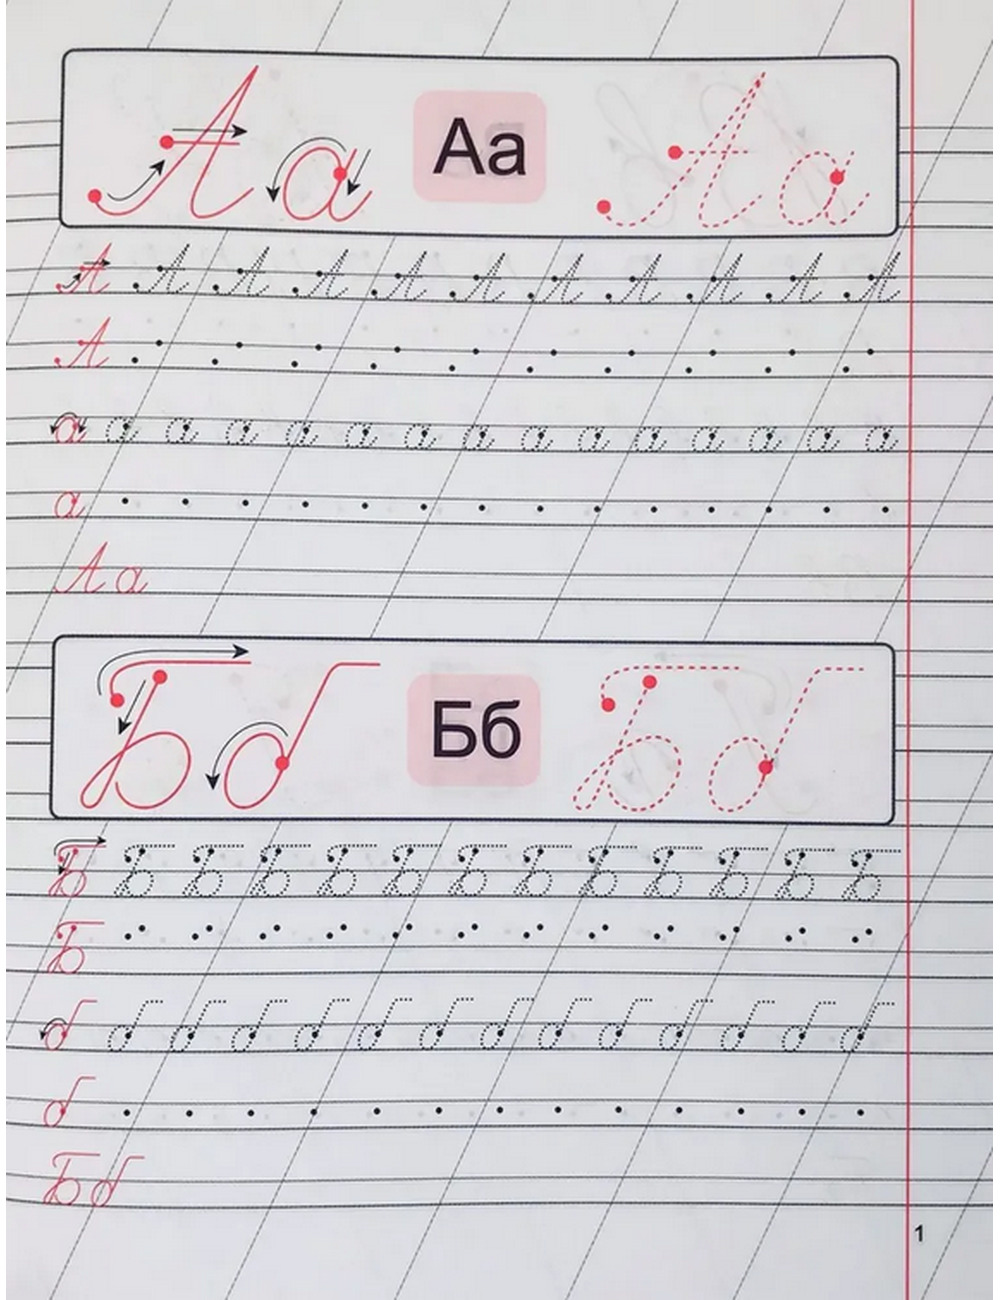 А а Аа А а
А А А А А А А А А А А
А
а а а а а а а а а а а а а а а
а
А а
Б б Бб Б б
Б Б Б Б Б Б Б Б Б Б Б Б Б
Б
б б б б б б б б б б б б б б
б
Б б
1